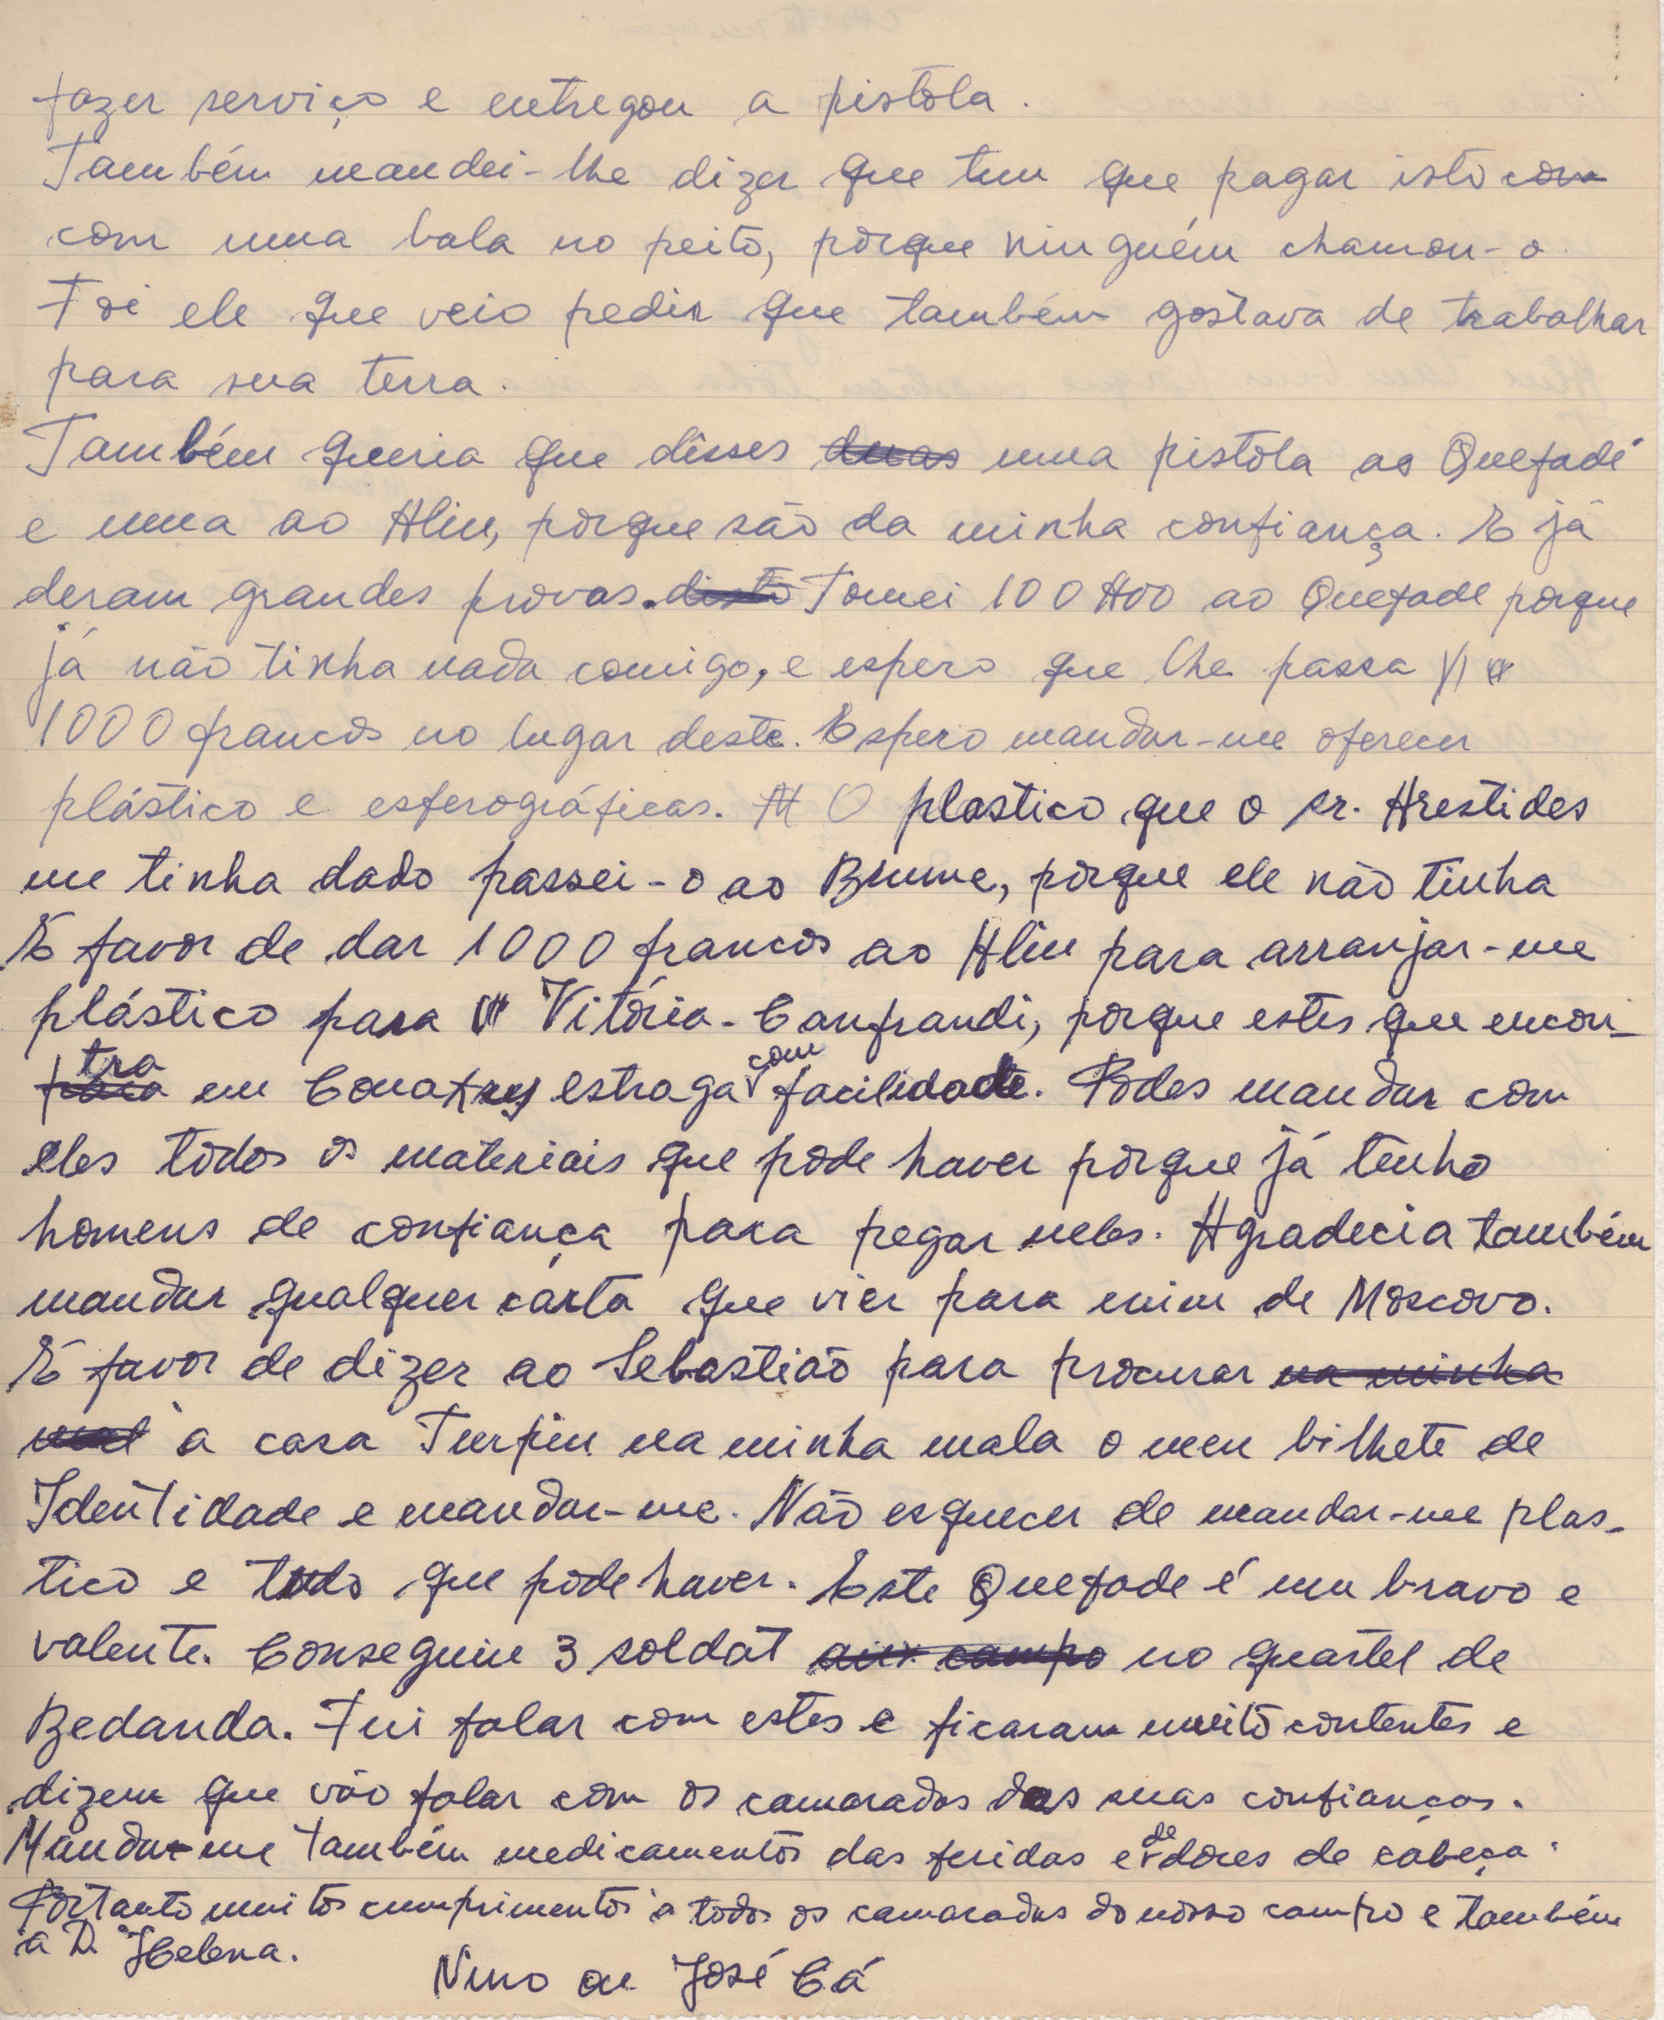 fazer serviço e entregou a pistola.
Também mandei-lhe dizer que tem que pagar isto com
com uma bala no peito, porque ninguém chamou-o.
Foi ele que veio pedir que também gostava de trabalhar
para sua terra.
Também queria que disses duas uma pistola ao Quefadé
e uma ao Alin, porque são da minha confiança. E já
deram grandes provas. disto Tomei 100$00 ao Quefade porque
já não tinha nada comigo, e espero que lhe passa
1000 francos no lugar deste. Espero mandar-me oferecer
plástico e esferográficas. O plastico que o sr. Arestides
me tinha dado passei-o ao Brume, porque ele não tinha
É favor de dar 1000 francos ao Alin para arranjar-me
plástico para Vitória-Canfrandi, porque estes que encon-
tra em Conakry estraga com facilidade. Podes mandar com
eles todos os materiais que pode haver porque já tenho
homens de confiança para pegar neles. Agradecia também
mandar qualquer carta que vier para mim de Moscovo.
É favor de dizer ao Sebastião para procurar na minha
mal à casa Turpin na minha mala o meu bilhete de
Identidade e mandar-me. Não esquecer de mandar-me plas-
tico e tudo que pode haver. Este Quefade é um bravo e
valente. Conseguiu 3 soldat aux campo no quartel de
Bedanda. Fui falar com estes e ficaram muito contentes e
dizem que vão falar com os camaradas das suas confianças.
Mandar-me também medicamentos das feridas e de dores de cabeça.
Portanto muitos cumprimentos à todos os camaradas do nosso campo e também
a D. Helena.
Nino ou José Cá